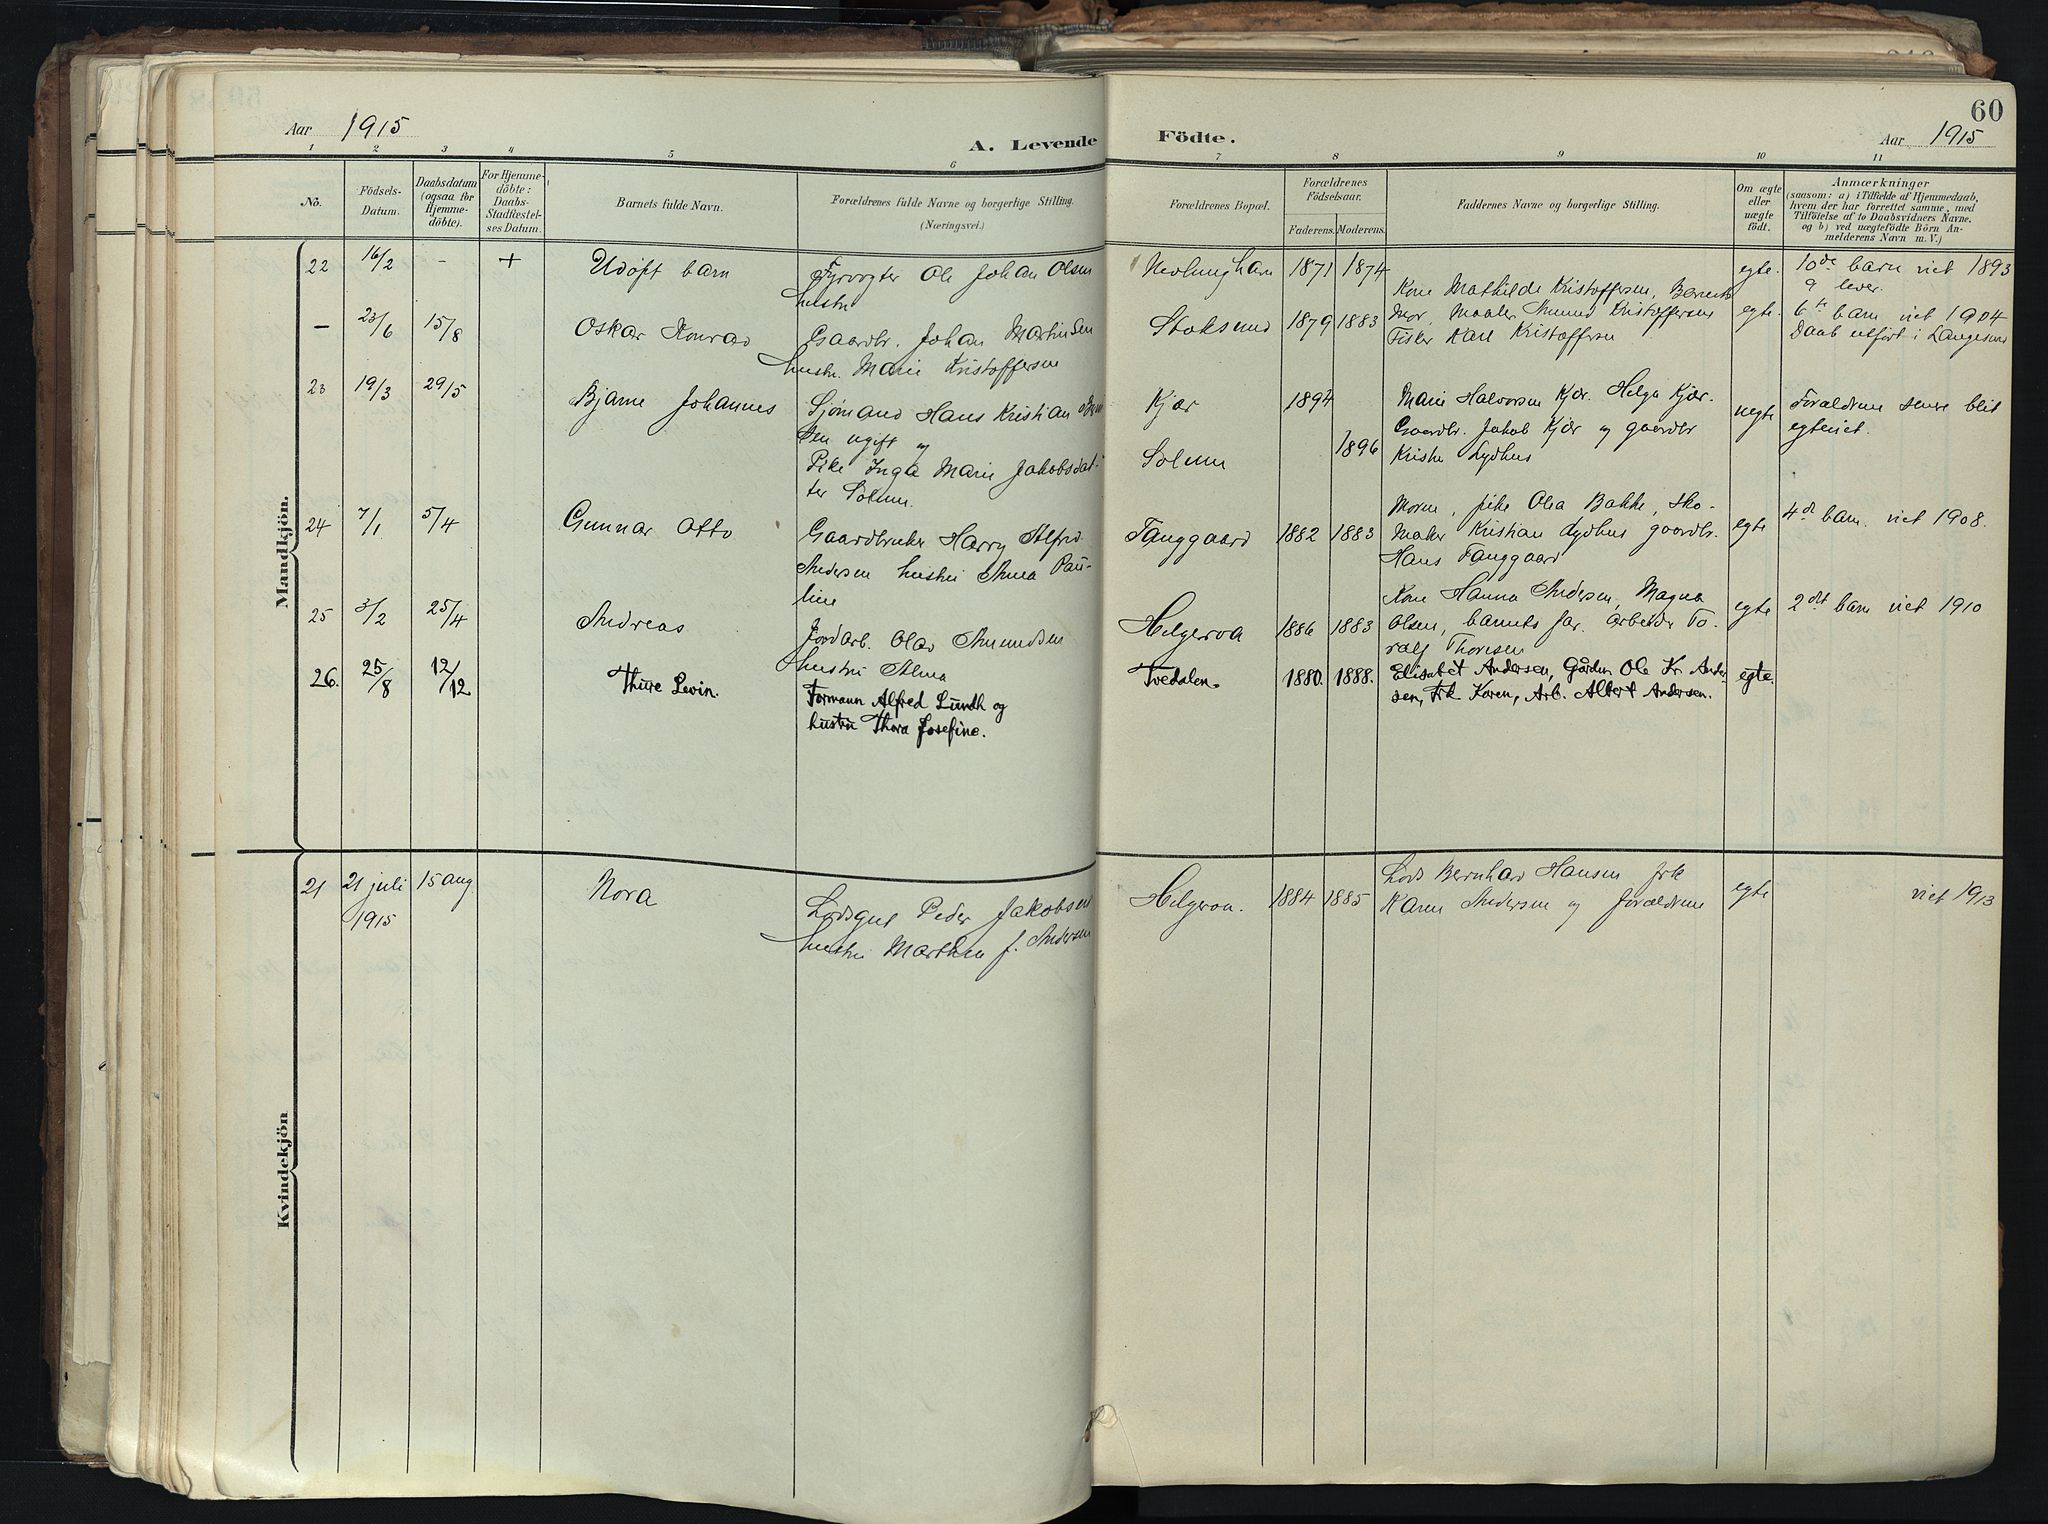 60
Aar 1915
A. Levende Födte.
Aar 1915
1 2 3 4 5 6 7 8 9 10 11
No.
Födsels-
Datum.
Daabsdatum
(ogsaa for
Hjemme-
döbte).
For Hjemme-
döbte:
Daabs-
Stadfæstel-
ses Datum.
Barnets fulde Navn.
Forældrenes fulde Navne og borgerlige Stilling.
(Næringsvei.)
Forældrenes Bopæl.
Forældrenes
Fødselsaar.
Faderens. Moderens.
Faddernes Navne og borgerlige Stilling.
Om ægte
eller
uægte
födt.
Anmærkninger
(saasom: a) i Tilfælde af Hjemmedaab,
hvem der har forrettet samme, med
Tilföielse af to Daabsvidners Navne,
og b) ved uægtefödte Börn An-
melderens Navn m. V.)
Mandkjön.
22 16/2 - + Udøpt barn Fyrvogter Ole Johan Olsen Nevlunghavn 1871 1874 egte. 10de barn viet 1893
hustru
9 lever.
Kone Mathilde Kristoffersen,
- 23/6 15/8 Oskar Konrad Gaardbr. Johan Martinsen Stoksund 1879 1883 Mor, Maaler Amund Kristoffersen egte. 6te barn viet 1904
hustr. Marie Kristoffersen
Fisker Karl Kristoffersen
Daab utført i Langesund
23 19/3 29/5 Bjarne Johannes Sjømand Hans Kristian Kjær 1894 Marie Halvorsen Kjær. Helga Kjær. uegte Forældrene senere blit
sen ugift og
Gaardbr. Jakob Kjær og gaardbr
egteviet.
Pike Inga Marie Jakobsdat-
Solum 1896
ter Solum.
24 7/1 5/4 Gunnar Otto Gaardbruker Harry Alfred Fanggaard 1882 1883
Moren, pike Olea Bakke, sko-
maker Kristian Lydhus gaardbr. egte 4de barn. viet 1908.
Andersen hustru Anna Pau-
line
Hans Fanggaard
25 3/2 25/4 Andreas Jordarb. Olav Amundsen Helgeroa 1886 1883
hustru Alma
Kone Hanna Andersen, Magna
Olsen, barnets far. arbeider To-
ralf Thoresen
egte 2det barn viet 1910
26. 25/8 12/12 Thure Levin. Formann Alfred Lundh og
hustru Thora Josefine.
Tvedalen. 1880. 1888. Elisabet Andersen, Gårdm Ole Kr. Ander-
sen, Frk Karen, Arb. Albert Andersen.
egte.
Kvindekjön
21 21 juli 15 aug. Nora Lodsgut Peder Jakobsen Helgeroa. 1884 1885 Lods Bernhard Hansen frk
1915
hustru Marthea f. Andersen
Karen Andersen og forældrene
egte viet 1913